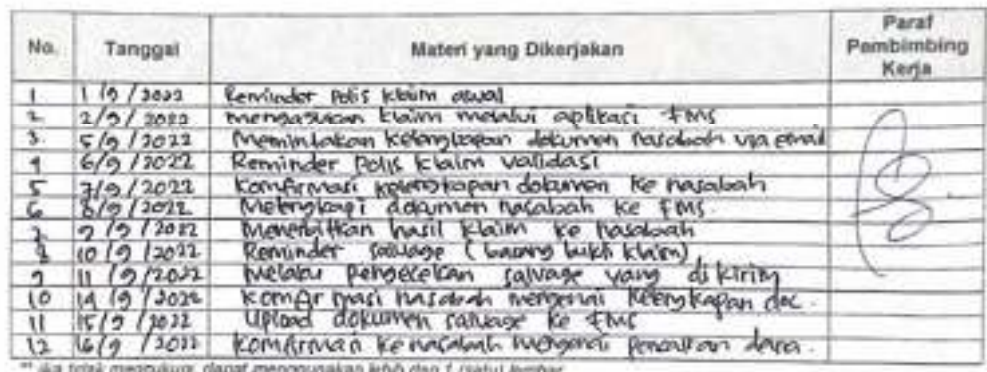 No. Tanggal Materi yang Dikerjakan Paraf Pembimbing Kerja
1 1/9/2022 Reminder Polis klaim awal
2. 2/9/2022 mengajukan klaim melalui aplikasi FMS
3. 5/9/2022 Memintakan kelengkapan dokumen nasabah via email
4 6/9/2022 Reminder Polis klaim validasi
5 7/9/2022 Komfirmasi kelengkapan dokumen ke nasabah
6 8/9/2022 Melengkapi dokumen nasabah ke FMS.
7. 9/9/2022 Menerbitkan hasil klaim ke nasabah
8 10/9/2022 Reminder salvage (barang bukti klaim)
9 11/9/2022 Melalui pengecekan salvage yang dikirim
10 14/9/2022 Komfirmasi nasabah mengenai kelengkapan doc.
11 15/9/2022 Upload dokumen salvage ke FMS
12 16/9/2022 Komfirmasi ke nasabah mengenai dana.
** Jika tidak mencukupi, dapat menggunakan lebih dari 1 (satu) lembar